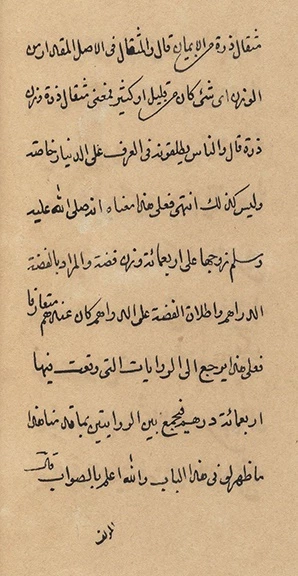 مثقال ذرة من الايمان قال والمثقال فى الاصل المقدار من
الوزن اى شئ كان من قليل او كثير فمعنى مثقال ذرة وزن
ذرة قال والناس يطلقونه فى العرف على الدينار خاصة
وليس كذلك انتهى فعلى هذا معناه انه صلى الله عليه
وسلم زوجها على اربعمائة وزن فضة والمراد بالفضة
الدراهم واطلاق الفضة على الدراهم كان عندهم متعارفا
فعلى هذا يرجع الى الروايات التى وقعت فيها
اربعمائة درهم فيجمع بين الروايتين بما قدمنا هذا
ما ظهر لى فى هذا الباب والله اعلم بالصواب قاله
المولف